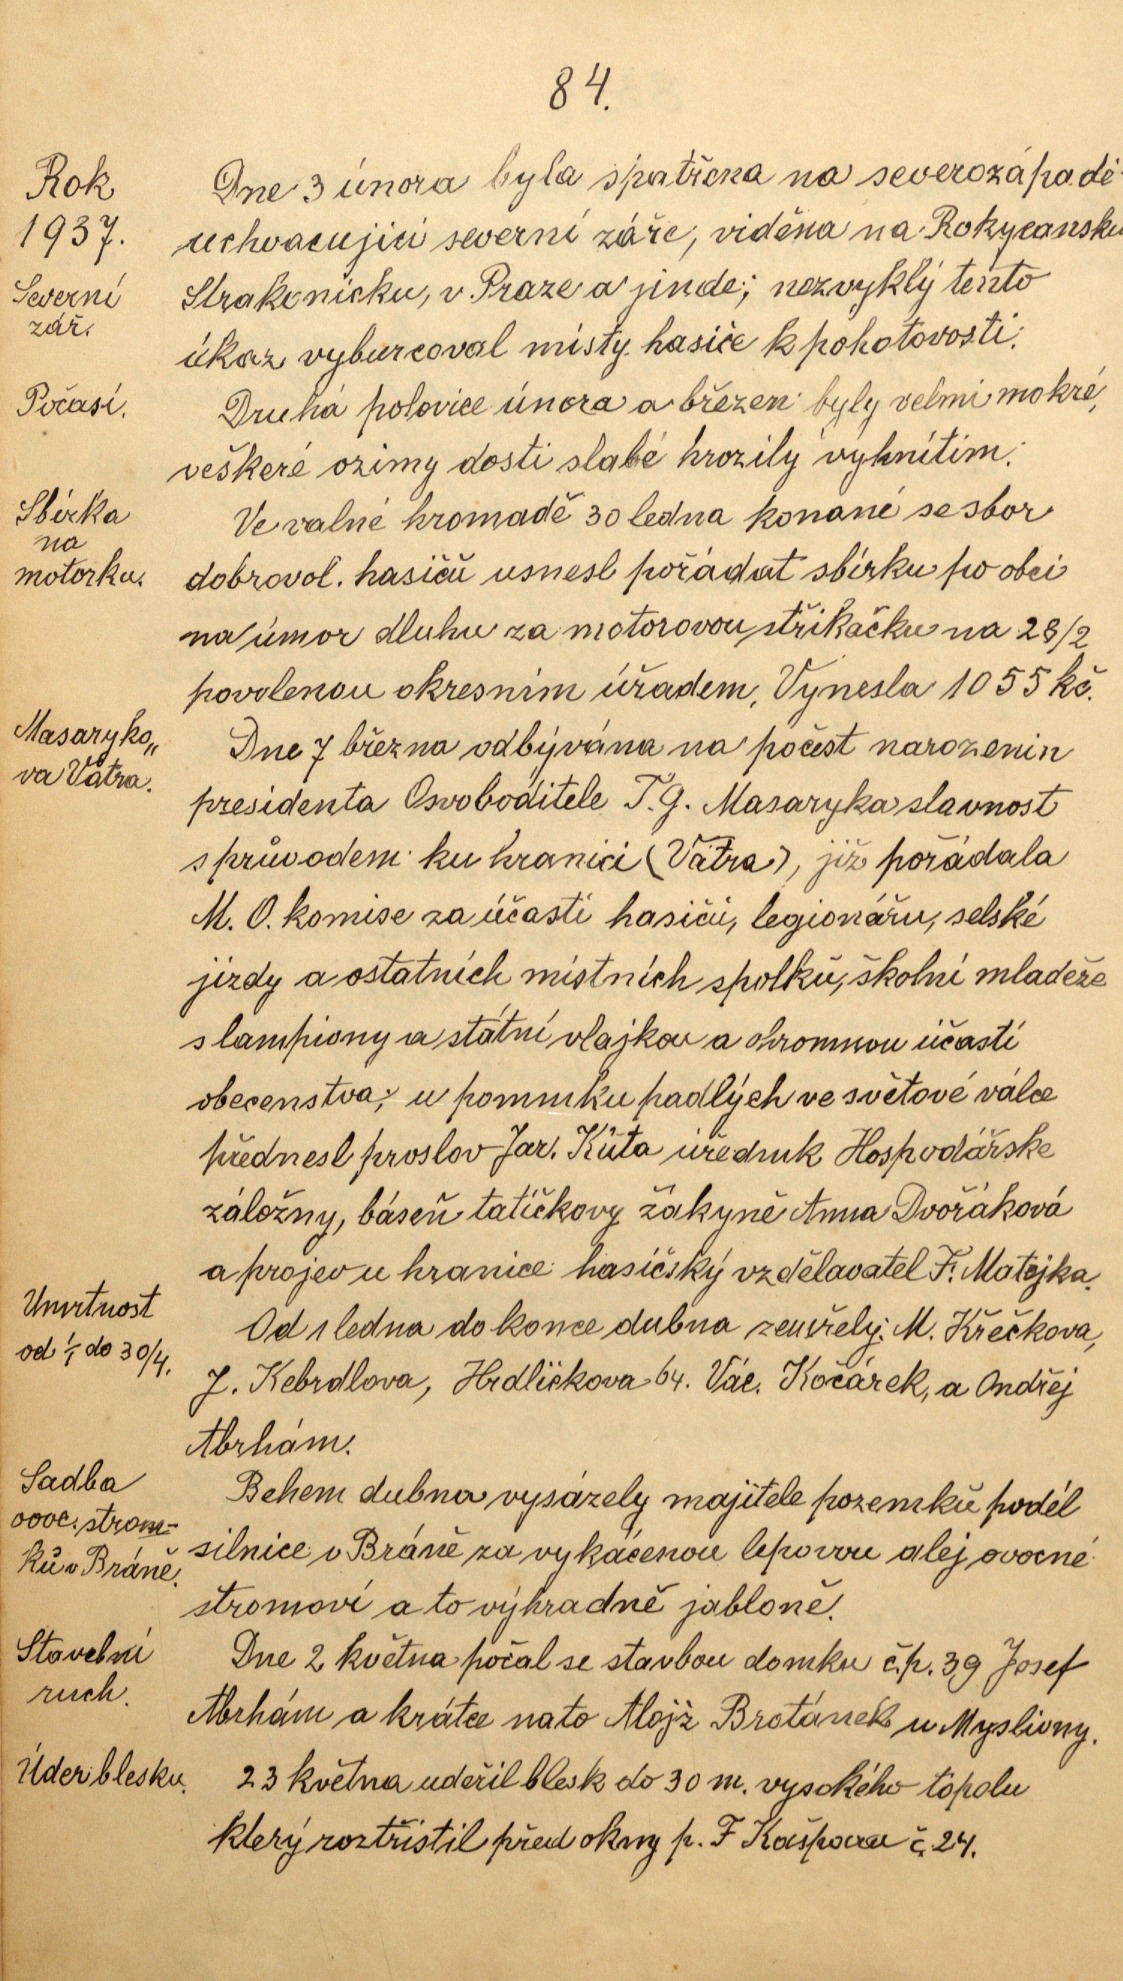 84.
Rok
1937.
Severní
zář.
Dne 3 února byla spatřena na severozápadě
uchvacující severní záře, viděna na Rokycansku
Strakonicku, v Praze a jinde; nezvyklý tento
úkaz vyburcoval místy hasiče k pohotovosti.
Počasí.
Druhá polovice února a březen byly velmi mokré,
veškeré ozimy dosti slabé hrozily vyhnitím.
Sbírka
na
motorku.
Ve valné hromadě 30 ledna konané se sbor
dobrovol. hasičů usnesl pořádat sbírku po obci
na úmor dluhu za motorovou stříkačku na 28/2
povolenou okresním úřadem, Vynesla 1055 kč.
Masaryko„
va Vatra.
Dne 7 března odbývána na počest narozenin
presidenta Osvoboditele T. G. Masaryka slavnost
s průvodem ku hranici (Vatra), již pořádala
M. O. komise za účasti hasičů, legionářu, selské
jízdy a ostatních místních spolků, školní mladeže
s lampiony a státní vlajkou a ohromnou účastí
obecenstva; u pomníku padlých ve světové válce
přednesl proslov Jar. Kůta úředník Hospodářske
záložny, báseň tatíčkovy žákyně Anna Dvořáková
a projev u hranice hasičský vzdělavatel F. Matějka.
Úmrtnost
od 1/1 do 30/4.
Od 1 ledna do konce dubna zemřely: M. Křečkova,
J. Kebrdlova, Hrdličkova 64. Vác. Kočárek, a Ondřej
Abrhám.
Sadba
ovoc. strom-
ků v Bráně.
Behem dubna vysázely majitele pozemků podél
silnice v Bráně za vykácenou lipovou alej ovocné
stromoví a to výhradně jabloně.
Stavební
ruch.
Dne 2 května počal se stavbou domku č.p. 39 Josef
Abrhám a krátce nato Alojz Brotánek u Myslivny.
Úder blesku.
23 května udeřil blesk do 30 m. vysokého topolu
který roztříštil před okny p. F Kašpara č. 24.